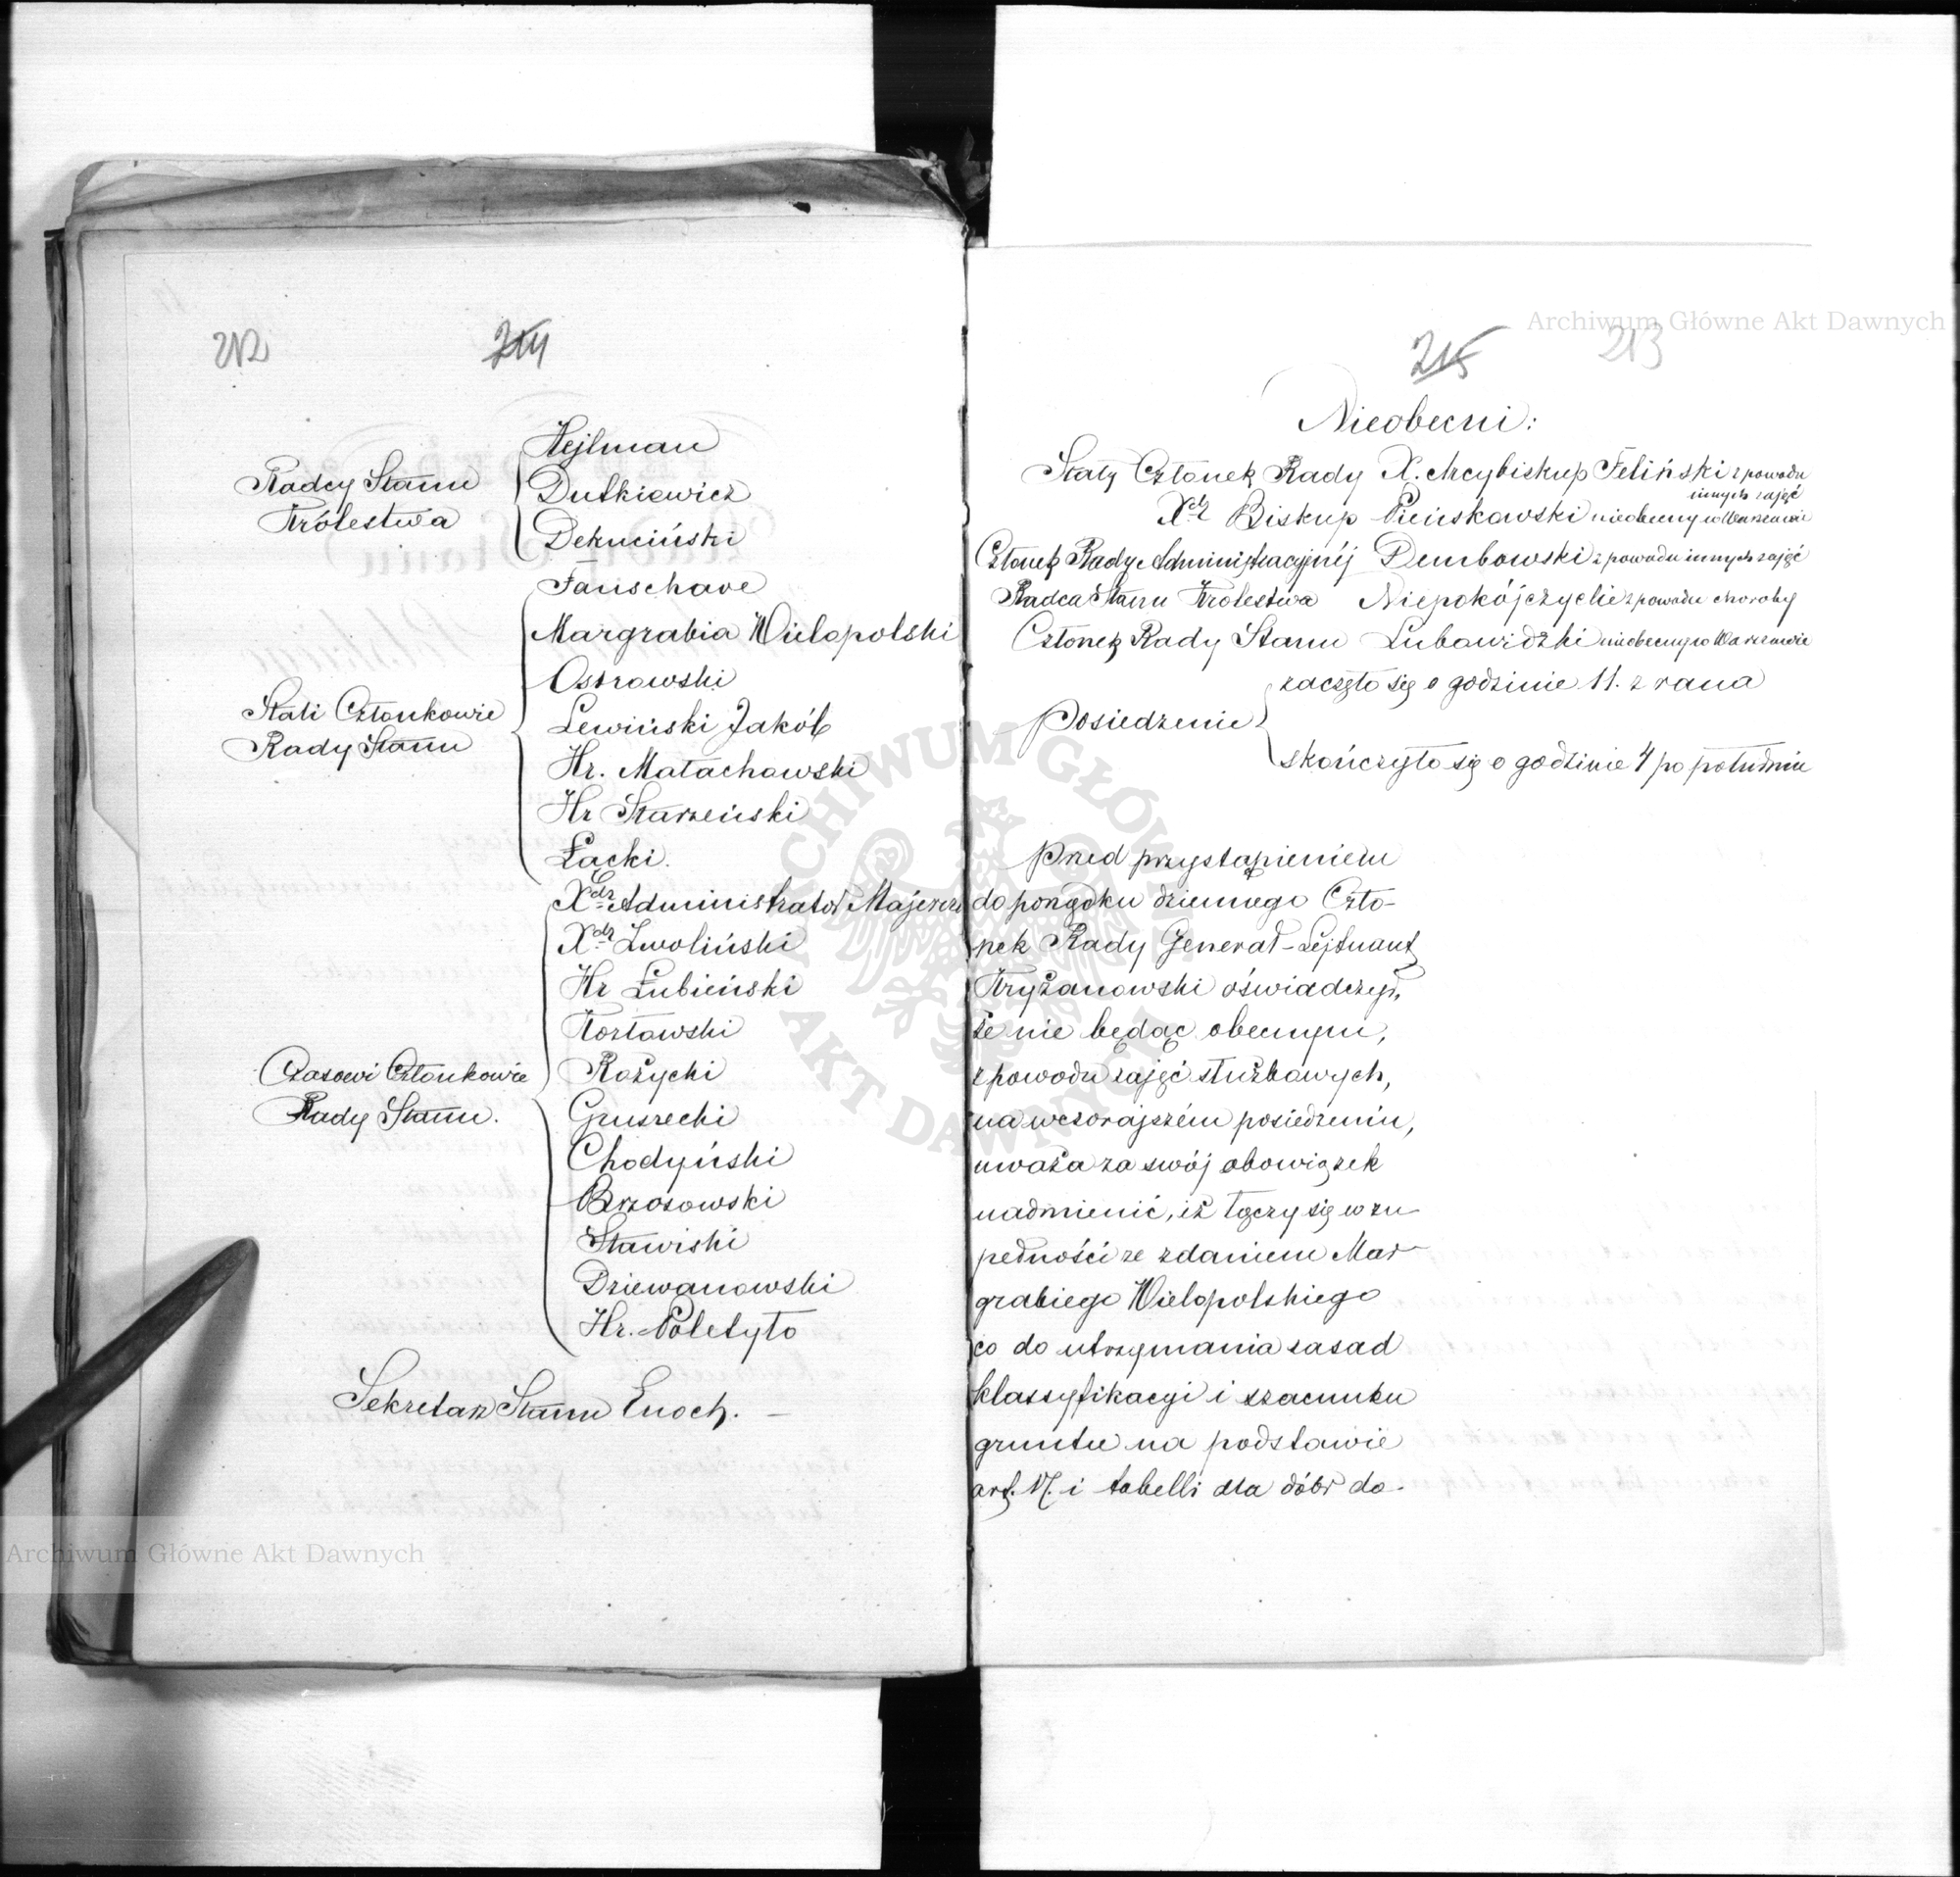 212 214
Radcy Stanu
Królestwa
Hejlman
Dutkiewicz
Dekuciński
Stali Członkowie
Rady Stanu
Fanschave
Margrabia Wielopolski
Ostrowski
Lewiński Jakób
Hr. Małachowski
Hr Starzeński
Łacki.
Czasowi Członkowie
Rady Stanu.
Xdz Administrator
Xdz Zwoliński
Hr Łubieński
Kozłowski
Rożycki
Gruszecki
Chodyński
Brzozowski
Sławiski
Dziewanowski
Hr. Poletyło
Sekretarz Stanu Enoch. —
215 213
Nieobecni:
Stały Członek Rady X. Arcybiskup Feliński z powodu
innych zajęć
Xdz Biskup Pieńkowski nieobecny w Warszawie
Członek Rady Administracyjnéj Dembowski z powodu innych zajęć
Radca Stanu Królestwa Niepokójczycki z powodu choroby
Członek Rady Stanu Lubowidzki nieobecny w Warszawie
Posiedzenie
zaczęło się o godzinie 11. z rana
skończyło się o godzinie 4 po południu
Przed przystąpieniem
do porządku dziennego Czło-
nek Rady Generał-Lejtnant
Kryżanowski oświadczył,
że nie będąc obecnym,
z powodu zajęć służbowych,
na wczorajszém posiedzeniu,
uważa za swój obowiązek
nadmienić, iż łączy się w zu-
pełności ze zdaniem Mar-
grabiego Wielopolskiego
co do utrzymania zasad
klassyfikacyi i szacunku
gruntu na podstawie
art. 17. i tabelli dla dóbr do-
Archiwum Główne Akt Dawnych
Archiwum Główne Akt Dawnych
ARCHIWUM GŁÓWNE AKT DAWNYCH